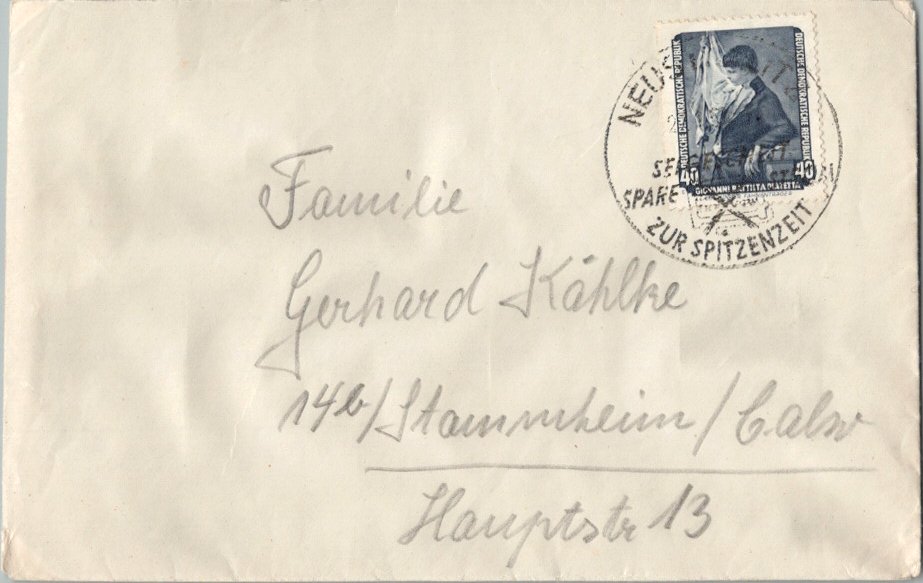 DEUTSCHE DEMOKRATISCHE REPUBLIK
DEUTSCHE DEMOKRATISCHE REPUBLIK
40
40
GIOVANNI BATTISTA PIAZETTA
SPARE
ZUR SPITZENZEIT
Familie
Gerhard Kählke
14b/Stammheim/Calw
Hauptstr 13